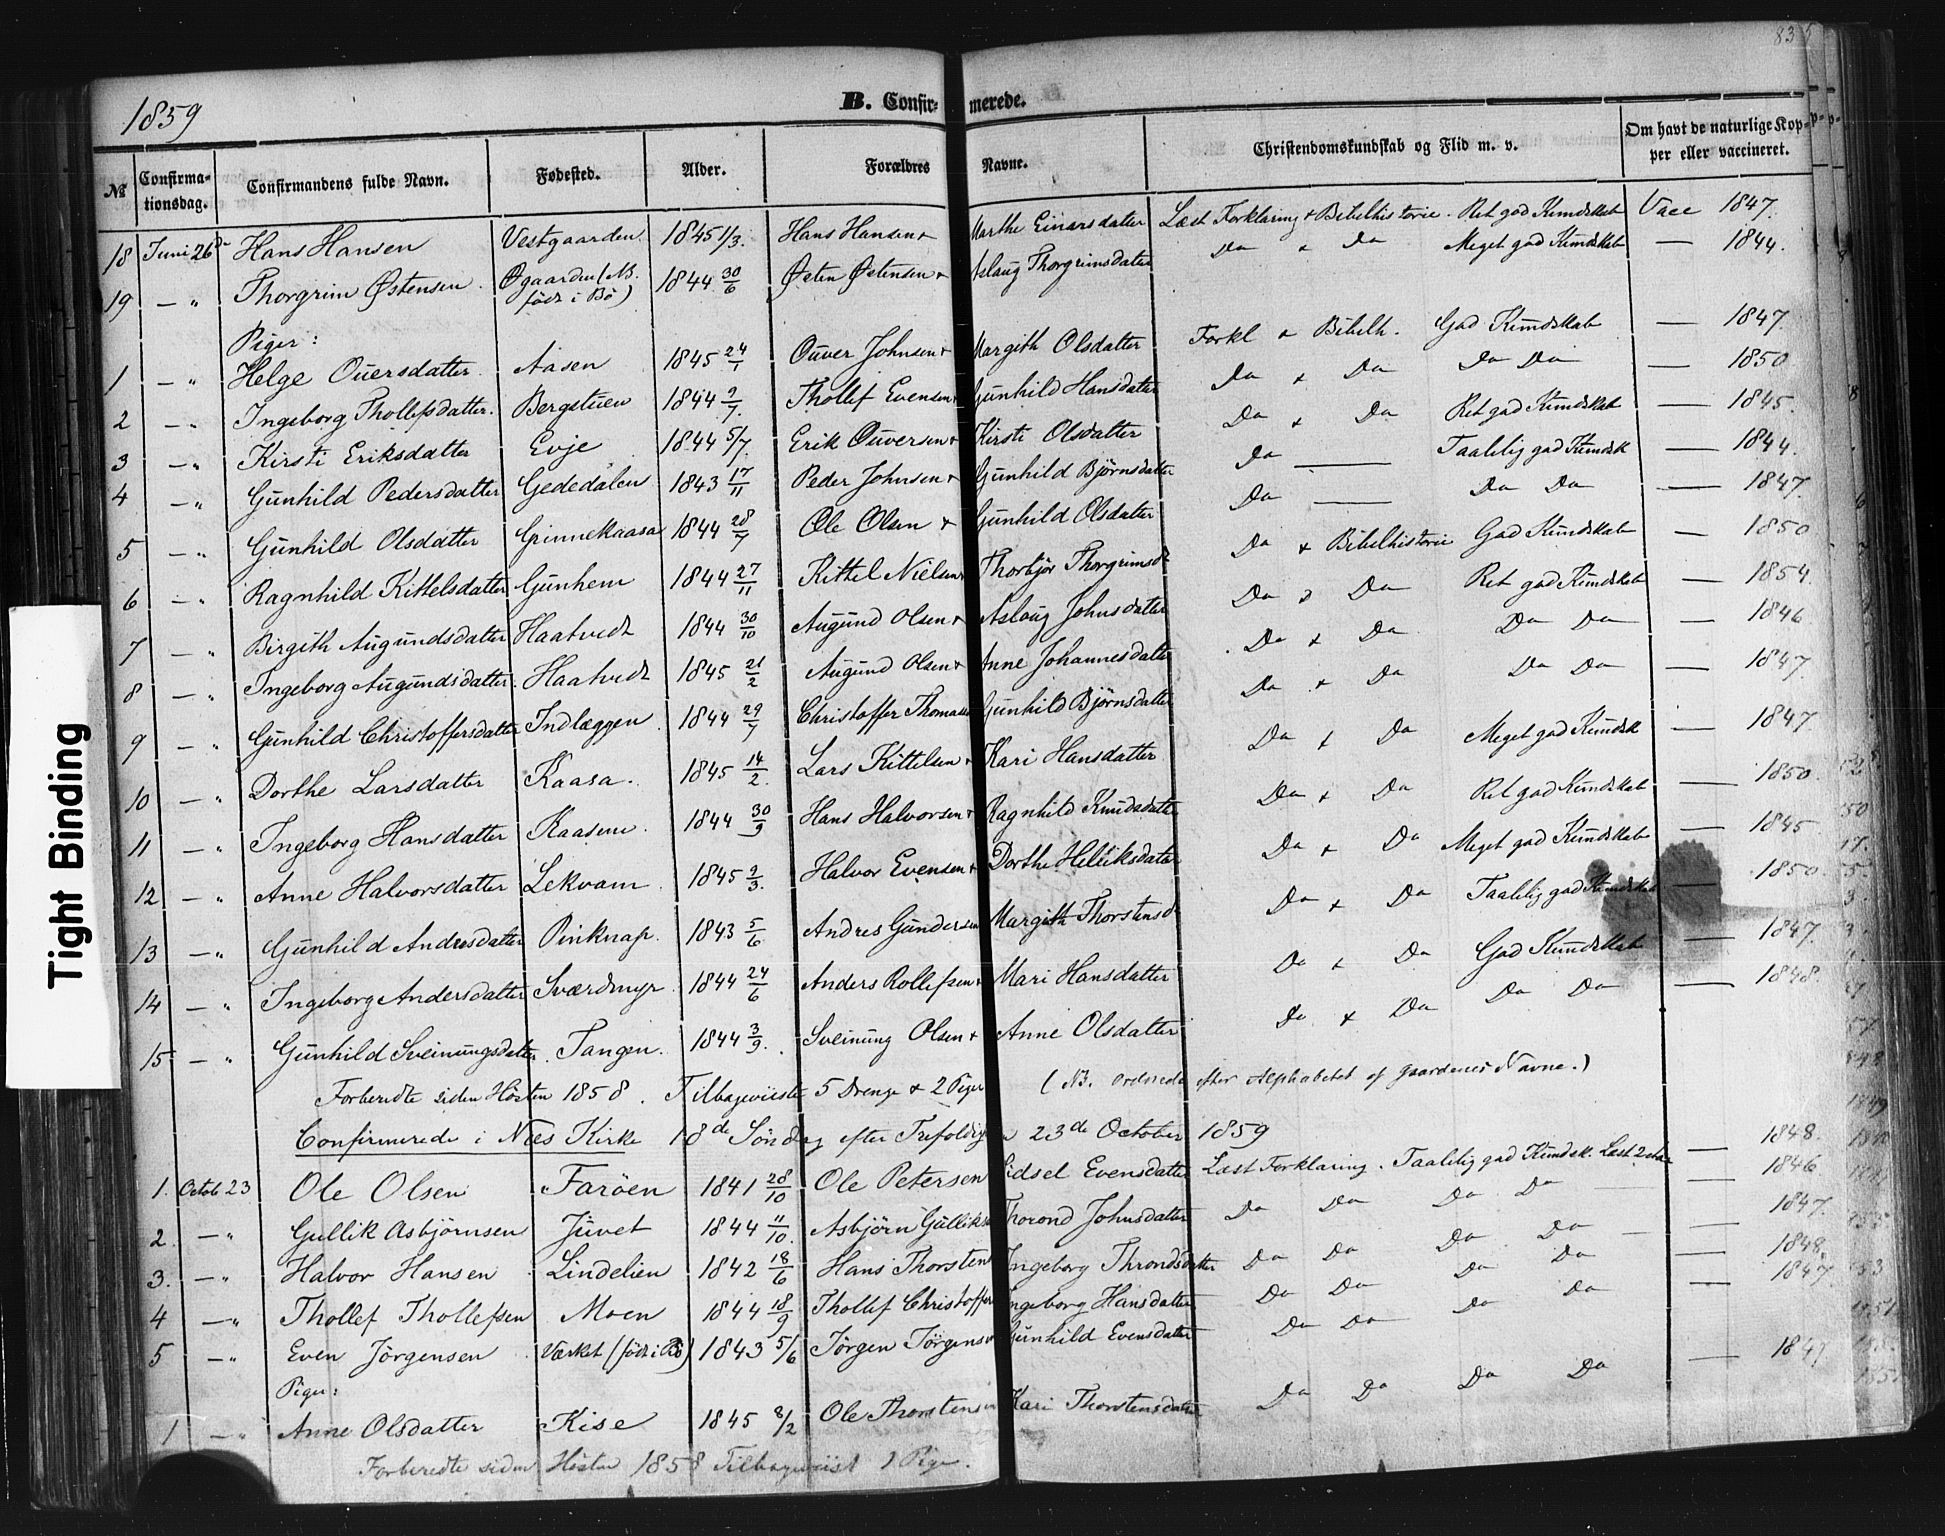 835
1859
B. Confirmerede.
№ Confirmationsdag. Confirmandens fulde Navn. Fødested. Alder. Forældres Navne. Christendomskundskab og Flid m. v. Om havt de naturlige Kopper eller vaccineret.
18 Juni 26de Hans Hansen Vestgaarden 1845 1/3. Hans Hansen + Marthe Einarsdatter Læst Forklaring + Bibelhistorie. Ret god Kundskab Vacc 1847.
19 — „ Thorgrim Østensen. Øgaarden (NB. født i Bö) 1844 30/6 Østen Østensen + Aslaug Thorgrimsdatter Do + Do Meget god Kundskab — 1844.
Piger:
1 — „ Helge Ouersdatter. Aasen 1845 24/1 Ouver Johnsen + Margith Olsdatter Forkl + Bibelh. God Kundskab — 1847.
2 — „ Ingeborg Thollefsdatter. Bergstuen 1844 9/7 Thollef Evensen + Gunhild Hansdatter Do + Do Do Do — 1850
3 — „ Kirsti Eriksdatter Evje 1844 5/7. Erik Ouversen + Kirsti Olsdatter Do + Do Ret god Kundskab — 1845.
4 — „ Gunhild Pedersdatter Gededalen 1843 17/11 Peder Johnsen + Gunhild Björnsdatter Do — Taalelig god Kundsk — 1844.
5 — „ Gunhild Olsdatter Grinnekaasa 1844 28/7 Ole Olsen + Gunhild Olsdatter Do — Do Do — 1847.
6 — „ Ragnhild Kittelsdatter Gunhem 1844 27/11 Kittel Nielsen + Thorbjør Thorgrimsd. Do + Bibelhistorie God Kundskab — 1850
7 — „ Birgith Augundsdatter Haatvedt 1844 30/10 Augund Olsen + Aslaug Johnsdatter Do + Do Ret god Kundskab — 1854.
8 — „ Ingeborg Augundsdatter. Haatvedt 1845 21/2 Augund Olsen + Anne Johannesdatter Do + Do Do Do — 1846
9 — „ Gunhild Christoffersdatter Indlæggen. 1844 29/7 Christoffer Thomassen Gunhild Björnsdatter Do + Do Do Do — 1847.
10 — „ Dorthe Larsdatter Kaasa. 1845 14/2. Lars Kittelsen + Kari Hansdatter Do + Do Meget god Kundsk — 1847.
11 — „ Ingeborg Hansdatter Kaasene. 1844 30/9 Hans Halvorsen + Ragnhild Knudsdatter Do + Do Ret god Kundskab — 1850.
12 — „ Anne Halvorsdatter Lekvam. 1845 2/3. Halvor Evensen + Dorthe Helliksdatter Do + Do Meget god Kundskab — 1845
13 — „ Gunhild Andresdatter Pinknap. 1843 5/6 Andres Gundersen Margith Thorstensd. Do + Do Taalelig god Kundskab — 1850.
14 — „ Ingeborg Andersdatter Sværdmyr 1844 24/6 Anders Rollefsen + Mari Hansdatter Do + Do God Kundskab — 1847.
15 — „ Gunhild Sveinungsdatter. Tangen. 1844 3/9. Sveinung Olsen + Anne Olsdatter Do + Do Do Do — 1848.
Forberedte siden Høsten 1858. Tilbageviiste 5 Drenge + 2 Piger (NB. ordnede efter Alphabetet af gaardenes Navne.)
Confirmerede i Næs Kirke 18de Söndag efter Trefoldig 23de October 1859
1. Octob 23 Ole Olsen Faröen 1841 28/10 Ole Petersen Sidsel Evensdatter Læst Forklaring. Taalelig god Kundsk. Læst — 1848.
2. — „ Gullik Asbjörnsen Juvet 1844 11/10. Asbjörn Gulliksen Thorond Johnsdatter Do Do Do Do — 1846
3. — „ Halvor Hansen Lindelien 1842 18/6 Hans Thorsten Ingeborg Throndsdatter Do Do Do Do — 1847.
4 — „ Thollef Thollefsen Moen 1844 18/9 Thollef Christoffer Ingeborg Hansdatter Do Do Do Do — 1848.
5 — „ Even Jörgensen Værket (födt i Bö) 1843 5/6 Jörgen Jörgensen Gunhild Evensdatter Do Do Do Do — 1847
Piger:
1 — „ Anne Olsdatter Kise 1845 8/2 Ole Thorstensen Kari Thorstensdatter Do Do Do Do — 1847
Forberedte siden Høsten 1858 Tilbageviist 1 Pige.
Tight Binding